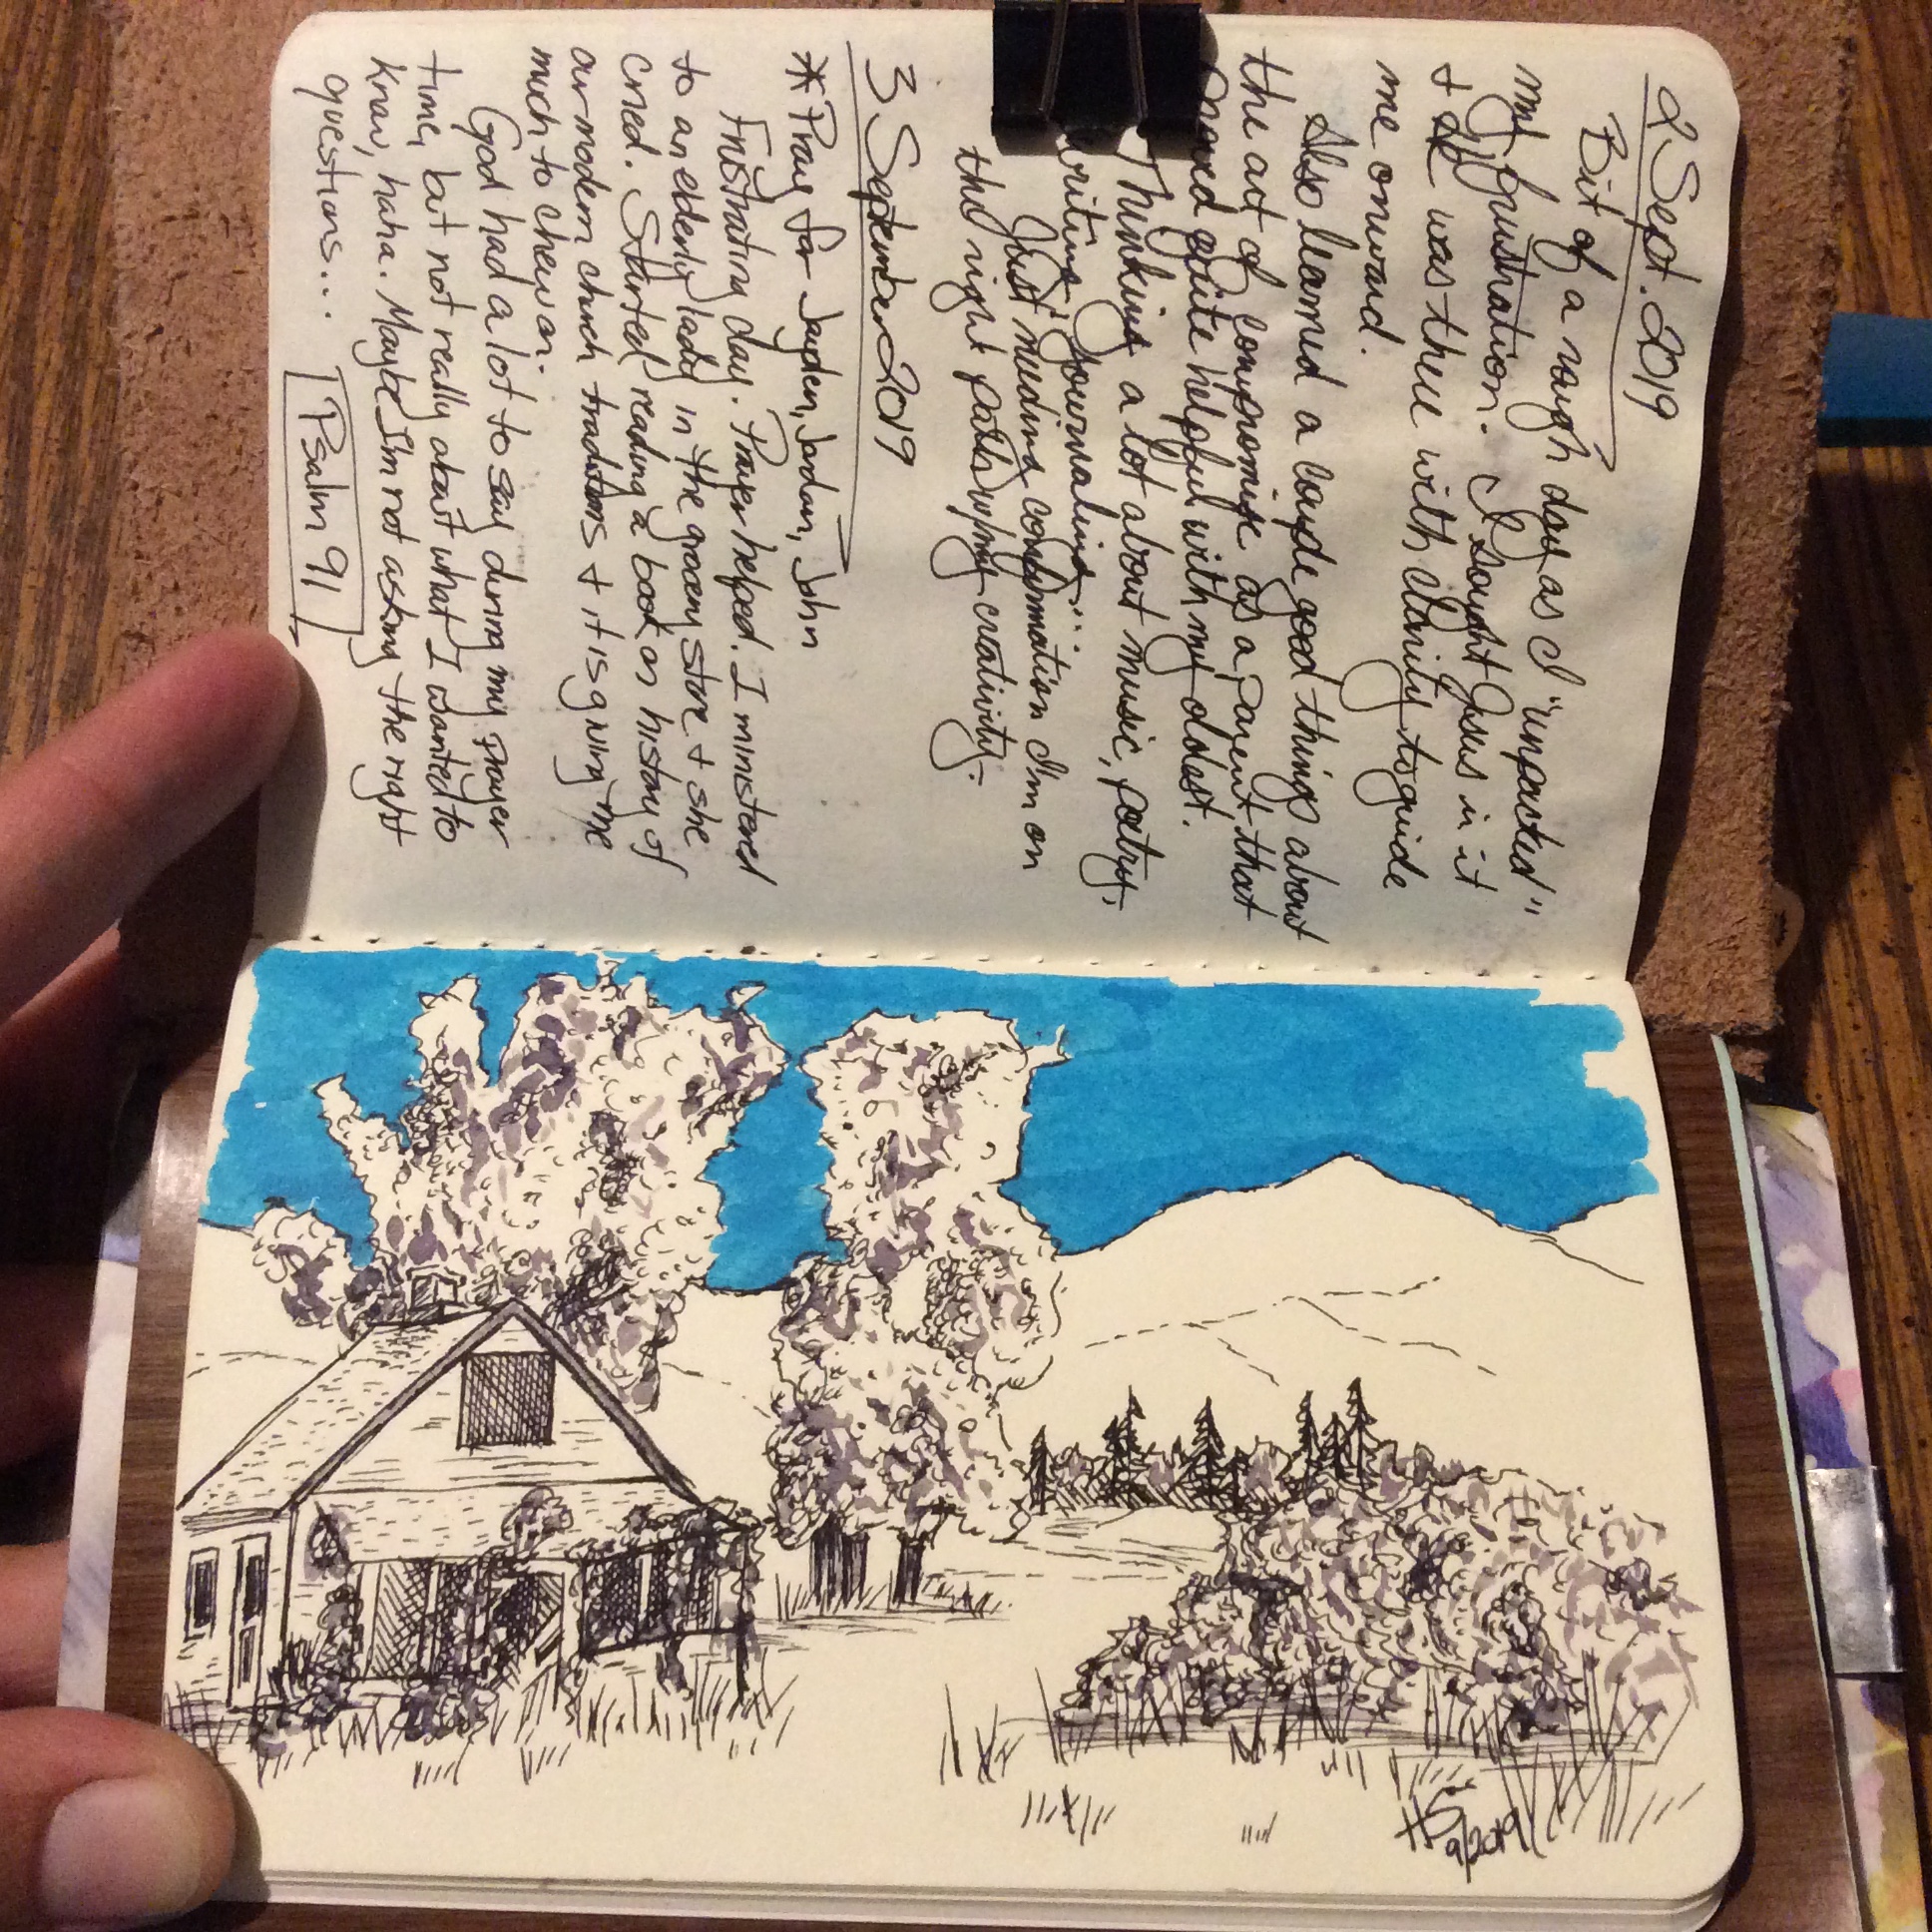 2 Sept. 2019
Bit of a rough day as I "unpacked"
my frustration. I sought Jesus in it
+ He was there with clarity to guide
me onward.
Also learned a couple good things about
the act of compromise as a parent that
proved quite helpful with my oldest.
Thinking a lot about music, poetry,
writing, journaling...
Just needing confirmation I'm on
the right path w/my creativity.
3 September 2019
* Pray for Jayden, Jordan, John
Frustrating day. Prayer helped. I ministered
to an elderly lady in the grocery store + she
cried. Started reading a book on history of
our modern church traditions + it is giving me
much to chew on.
God had a lot to say during my prayer
time, but not really about what I wanted to
know, haha. Maybe I'm not asking the right
questions...
Psalm 91
HS
9/2019